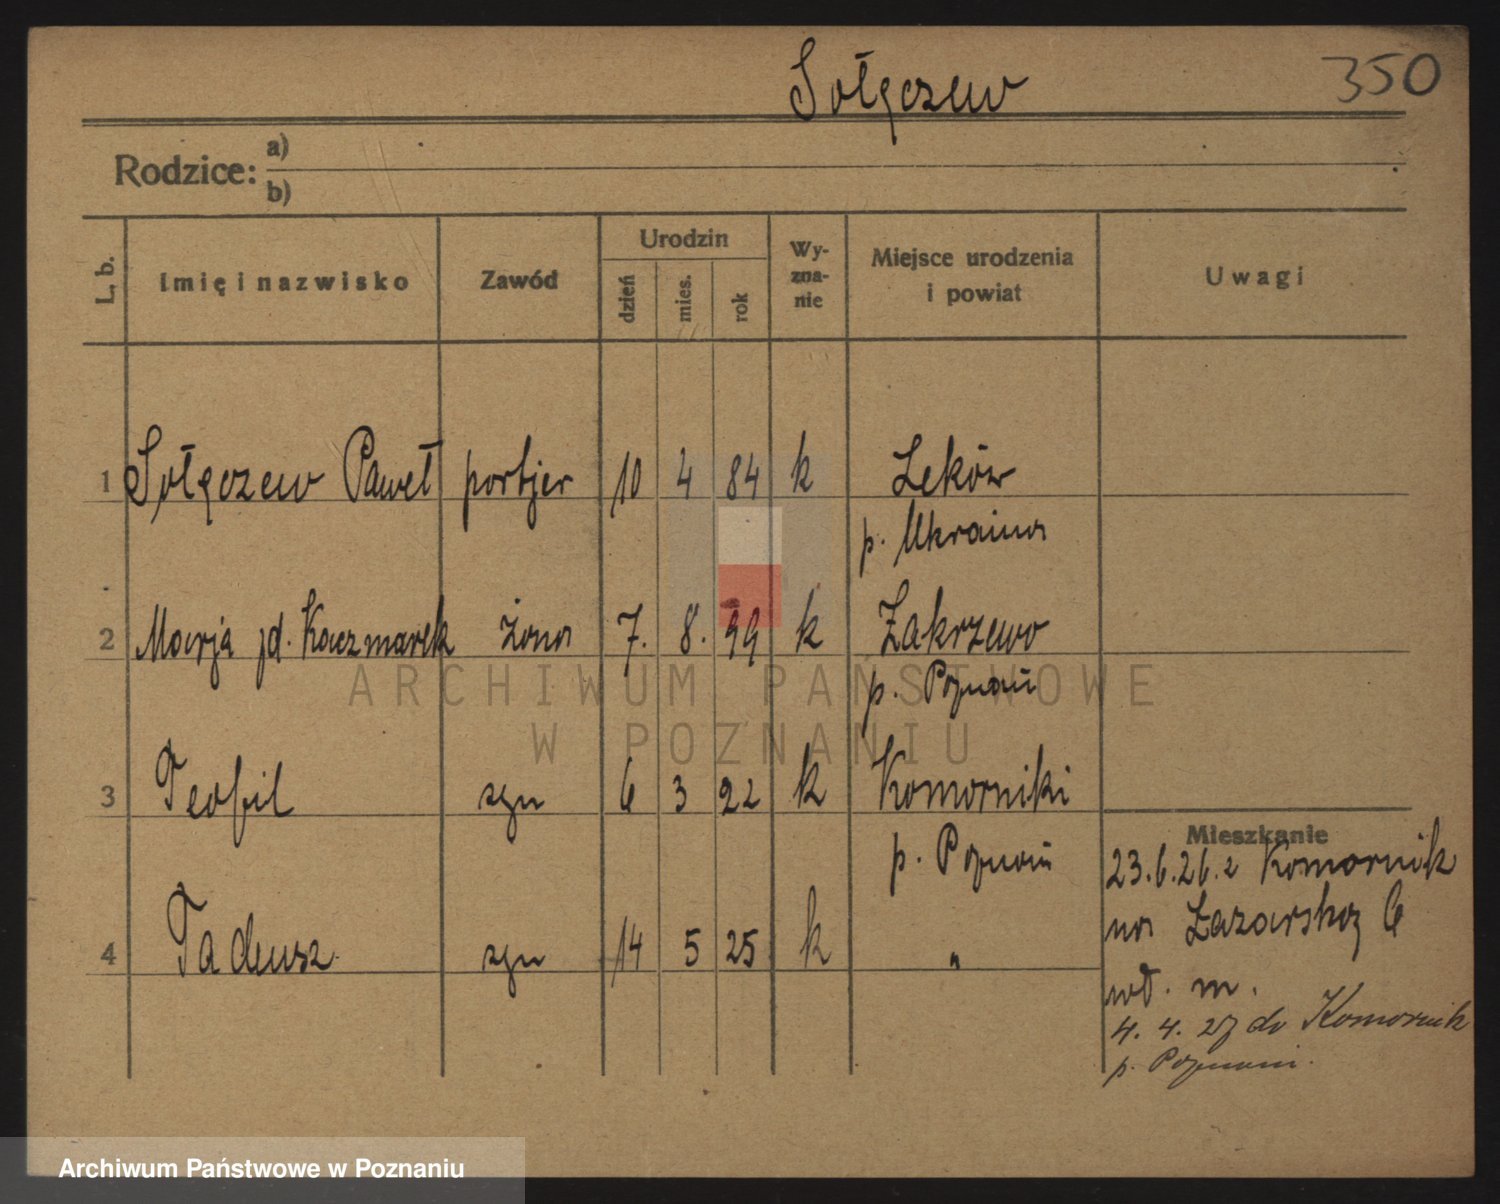 Sołęczew 350
Rodzice: a)
b)
L, b. Imię i nazwisko Zawód Urodzin dzień mies. rok Wy-zna-nie Miejsce urodzenia i powiat Uwagi
1 Sołęczew Paweł portjer 10 4 84 k Leków
p. Ukraina
2 Marja żona 7. 8. 99 k Zakrzewo
Kaczmarek
p. Poznań
ARCHIWUM PAŃSTWOWE
W POZNANIU
3 Teofil syn 6 3 22 k Komorniki
p. Poznań
4 Tadeusz syn 14 5 25 k "
Mieszkanie
23.6.26. z Komornik
na Łazarską 6
m.
4. 4. 27 do Komornik
p. Poznań.
Archiwum Państwowe w Poznaniu